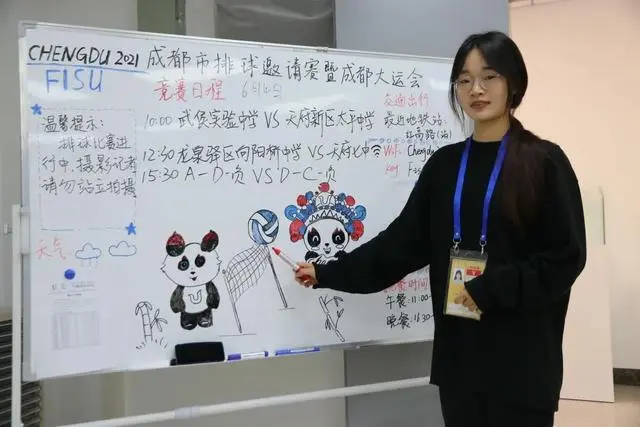 CHENGDU 2021
FISU
成都市排球邀请赛暨成都大运会
竞赛日程 6月4日
交通出行
最近地铁站:
10:00 武侯实验中学 VS 天府新区太平中学
12:30 龙泉驿区向阳桥中学 VS 天府七中
15:30 A-D-负 VS D-C-负
温馨提示:
排球比赛进
行中,摄影记者
请勿站立拍摄
天气
Chengdu
午餐:11:00
晚餐:16:30